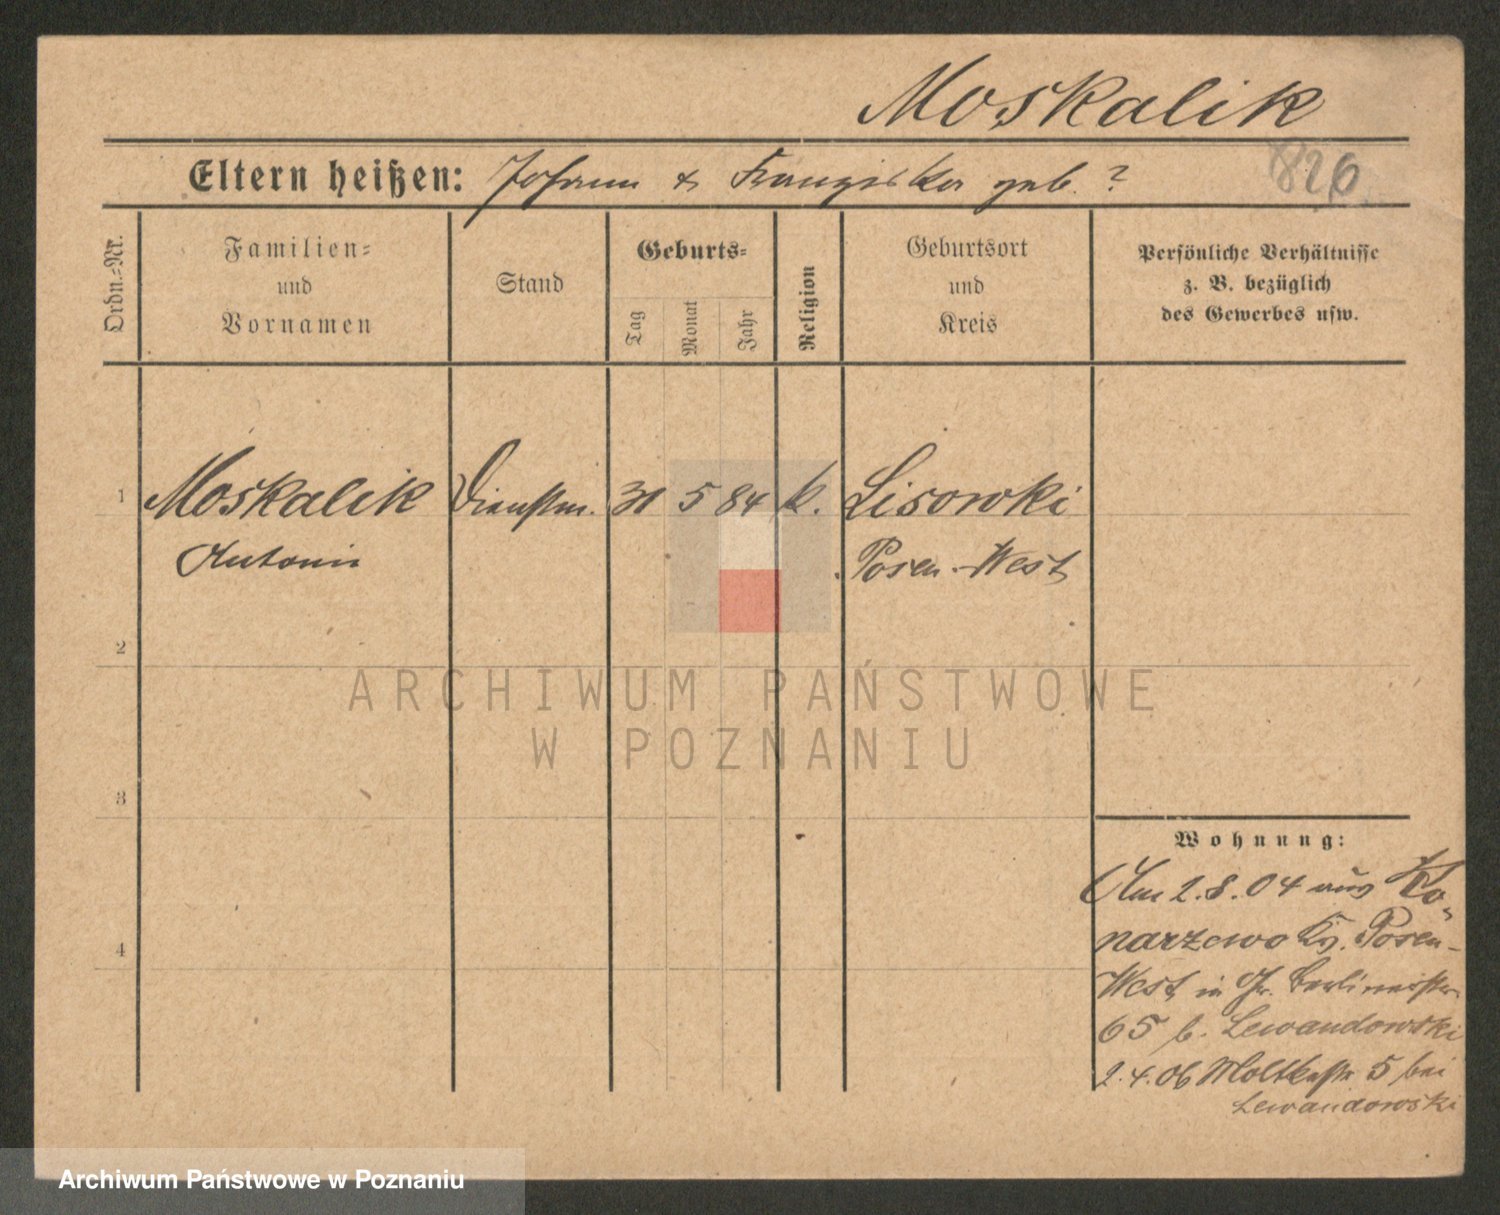 Moskalik
Eltern heißen: Johann & Franziska geb. ?
826
Ordn.=Nr.
Familien=
und
Vornamen
Stand
Geburts=
Tag
Monat
Jahr
Religion
Geburtsort
und
Kreis
Persönliche Verhältnisse
z. B. bezüglich
des Gewerbes usw.
1 Moskalik Dienstm. 31 5 84 k. Lisowki
Antonie Posen-West
2
ARCHIWUM PAŃSTWOWE
W POZNANIU
3
4
Wohnung:
Am 2.8.04 aus Ko=
narzewo Kr. Posen-
West in Gr. Berlinerstr.
65 b. Lewandowski
2.4.06 Moltkestr 5 bei
Lewandowski
Archiwum Państwowe w Poznaniu